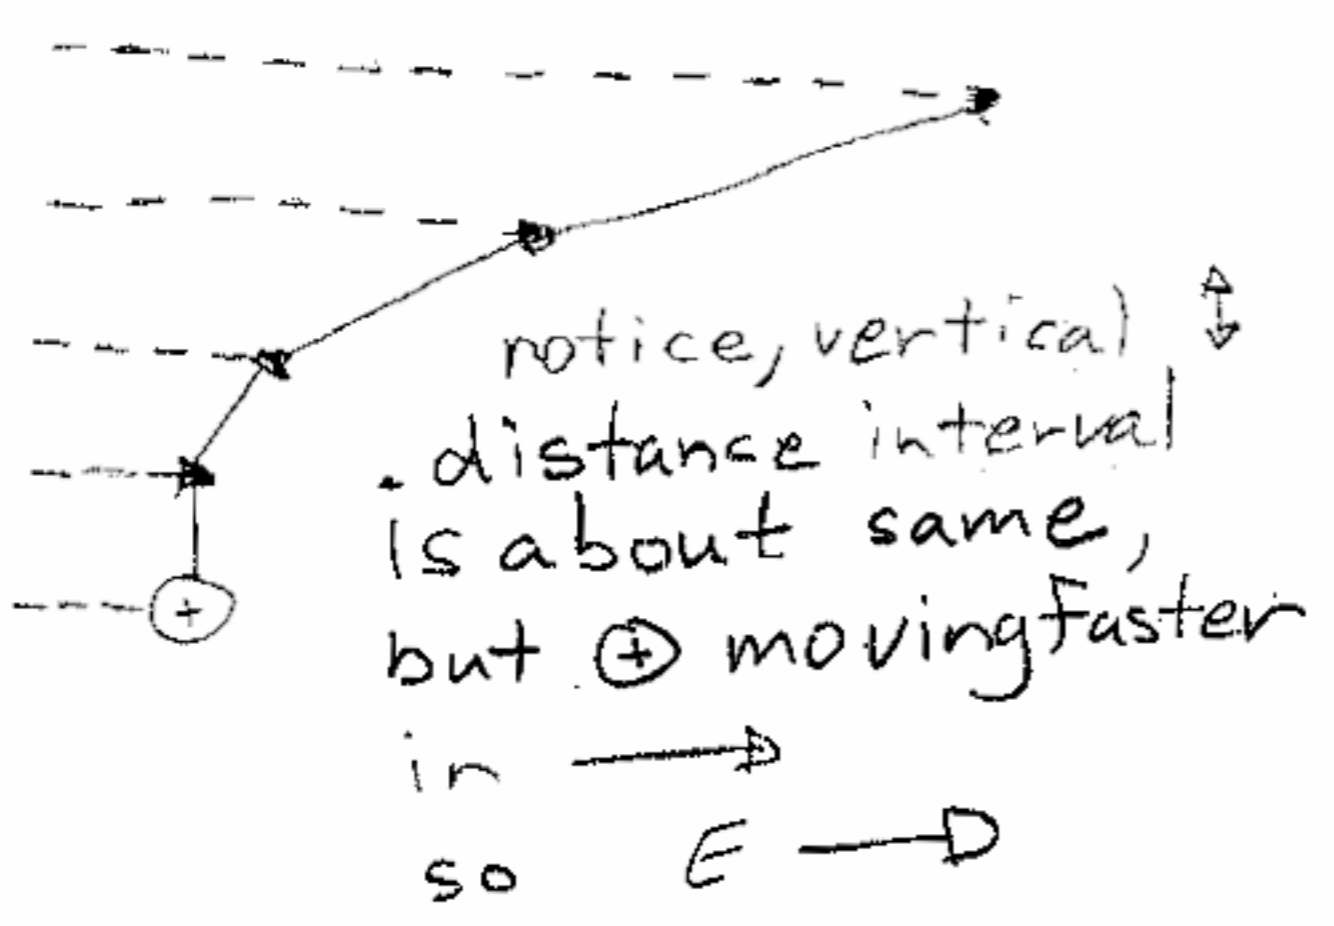 notice, vertical ↕
. distance interval
is about same,
but ⊕ moving faster
in →
so E →
+